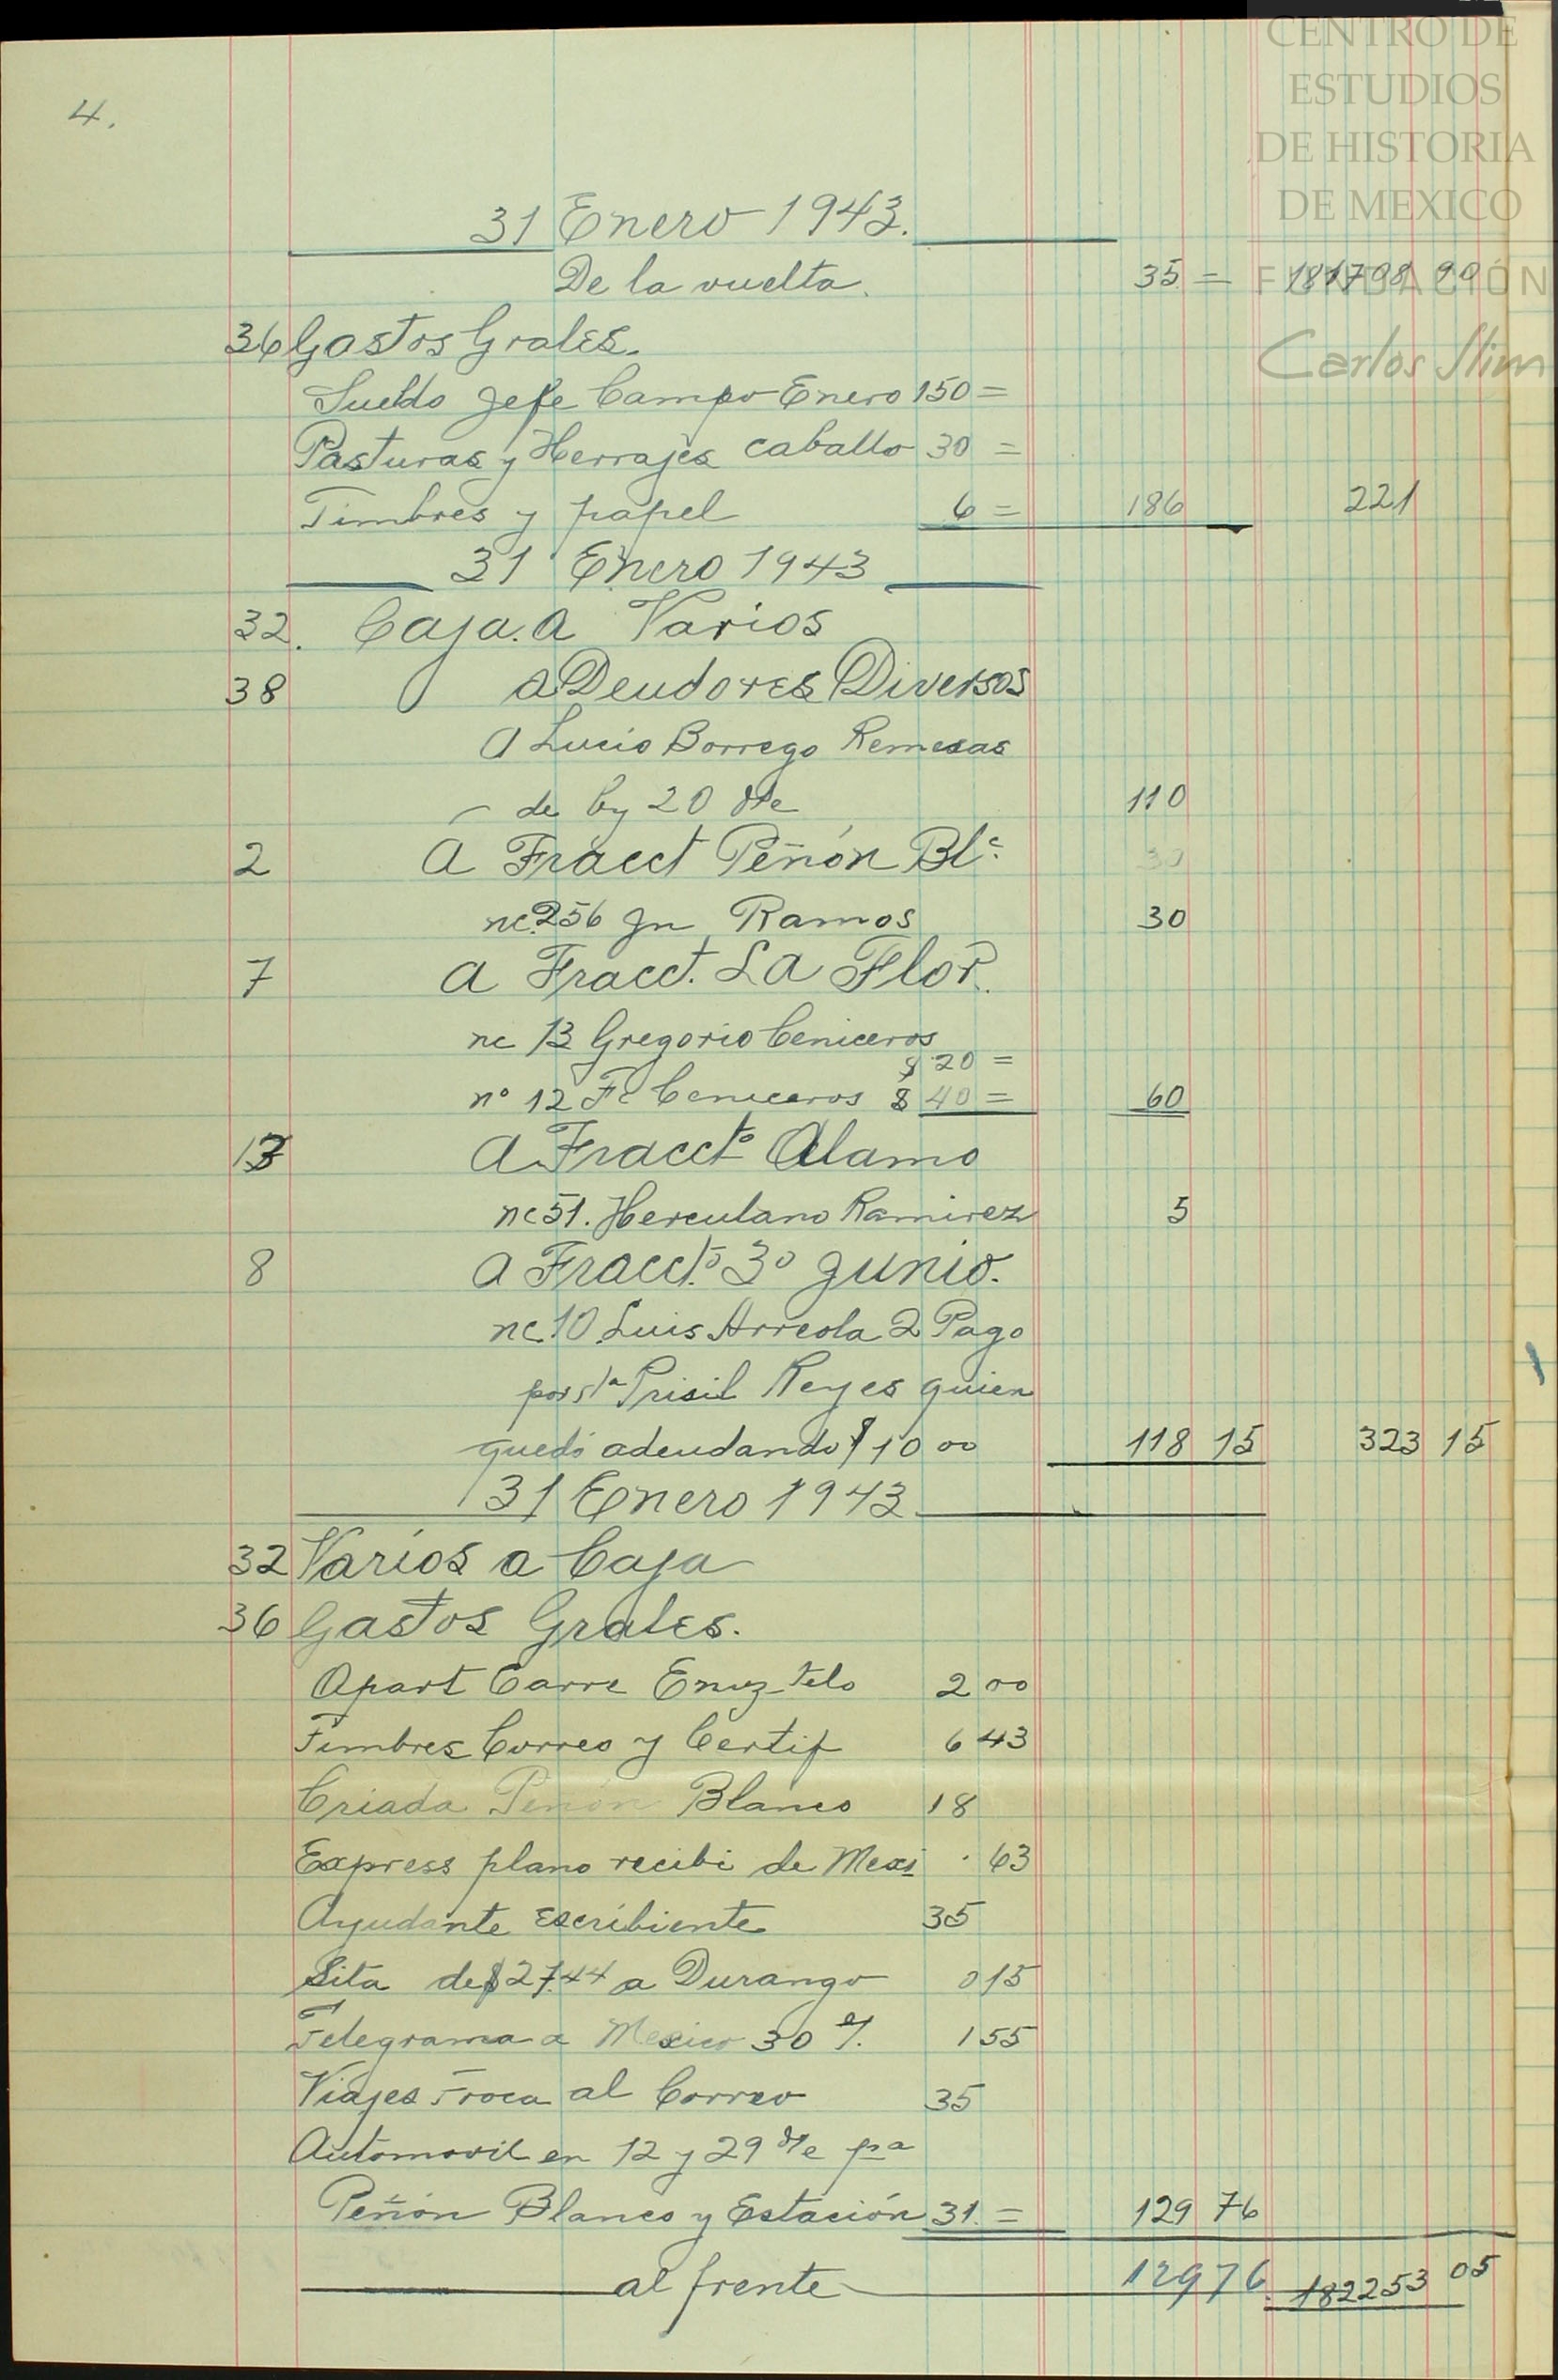 CENTRO DE
ESTUDIOS
DE HISTORIA
DE MEXICO
FUNDACIÓN
Carlos Slim
4.
31 Enero 1943.
De la vuelta. 35 = 181708 90
36 Gastos Grales.
Sueldo Jefe Campo Enero 150 =
Pasturas y Herrajes caballo 30 =
Timbres y papel 6 = 186 221
31 Enero 1943
32. Caja. a Varios
38 a Deudores Diversos
a Lucio Borrego Remesas
de 20 110
2 a Fracct Peñón Blc. 30
nc. 256 Jn Ramos 30
7 a Fracct. La Flor.
nc 13 Gregorio Ceniceros
$ 20 =
no 12 Fc Ceniceros $ 40 = 60
13 a Fraccto Alamo
nc 51. Herculano Ramirez 5
8 a Fraccto. 3o Junio.
nc. 10 Luis Arreola 2 Pago
Prisil Reyes quien
quedó adeudando $ 10 00 118 15 323 15
31 Enero 1943
32 Varios a Caja
36 Gastos Grales.
Apart Carre 2 00
Timbres Correo y Certif 6 43
Criada Peñon Blanco 18
Express plano recibi de Mexi . 63
Ayudante Escribiente 35
Sita de $ 27.44 a Durango 0 15
Telegrama a Mexico 30 1 55
Viajes Troca al Correo 35
Automovil en 12 y 29 pa
Peñón Blanco y Estación 31. = 129 76
al frente 129 76 182253 05